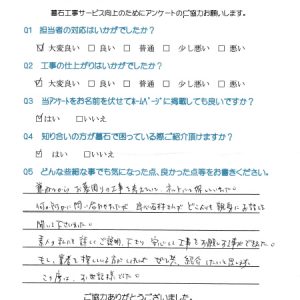 墓石工事サービス向上のためにアンケートのご協力お願いします。
Q1 担当者の対応はいかがでしたか？
☑大変良い □良い □普通 □少し悪い □悪い
Q2 工事の仕上がりはいかがでしたか？
☑大変良い □良い □普通 □少し悪い □悪い
Q3 当アンケートをお名前を伏せてホームページに掲載しても良いですか？
☑はい □いいえ
Q4 知り合いの方が墓石で困っている際ご紹介頂けますか？
☑はい □いいえ
Q5 どんな些細な事でも気になった点、良かった点等をお書きください。
お墓周りの工事を考えていて、ネットにて探していました。
何ヶ所かに問い合わせましたが
聞いて下さいました。
素人の私にも詳しくご説明下さり 安心して工事をお願いする事ができました。
もし、業者を探している方がいれば ぜひ 紹介したいと思います。
この度は、お世話様でした。
ご協力ありがとうございました。